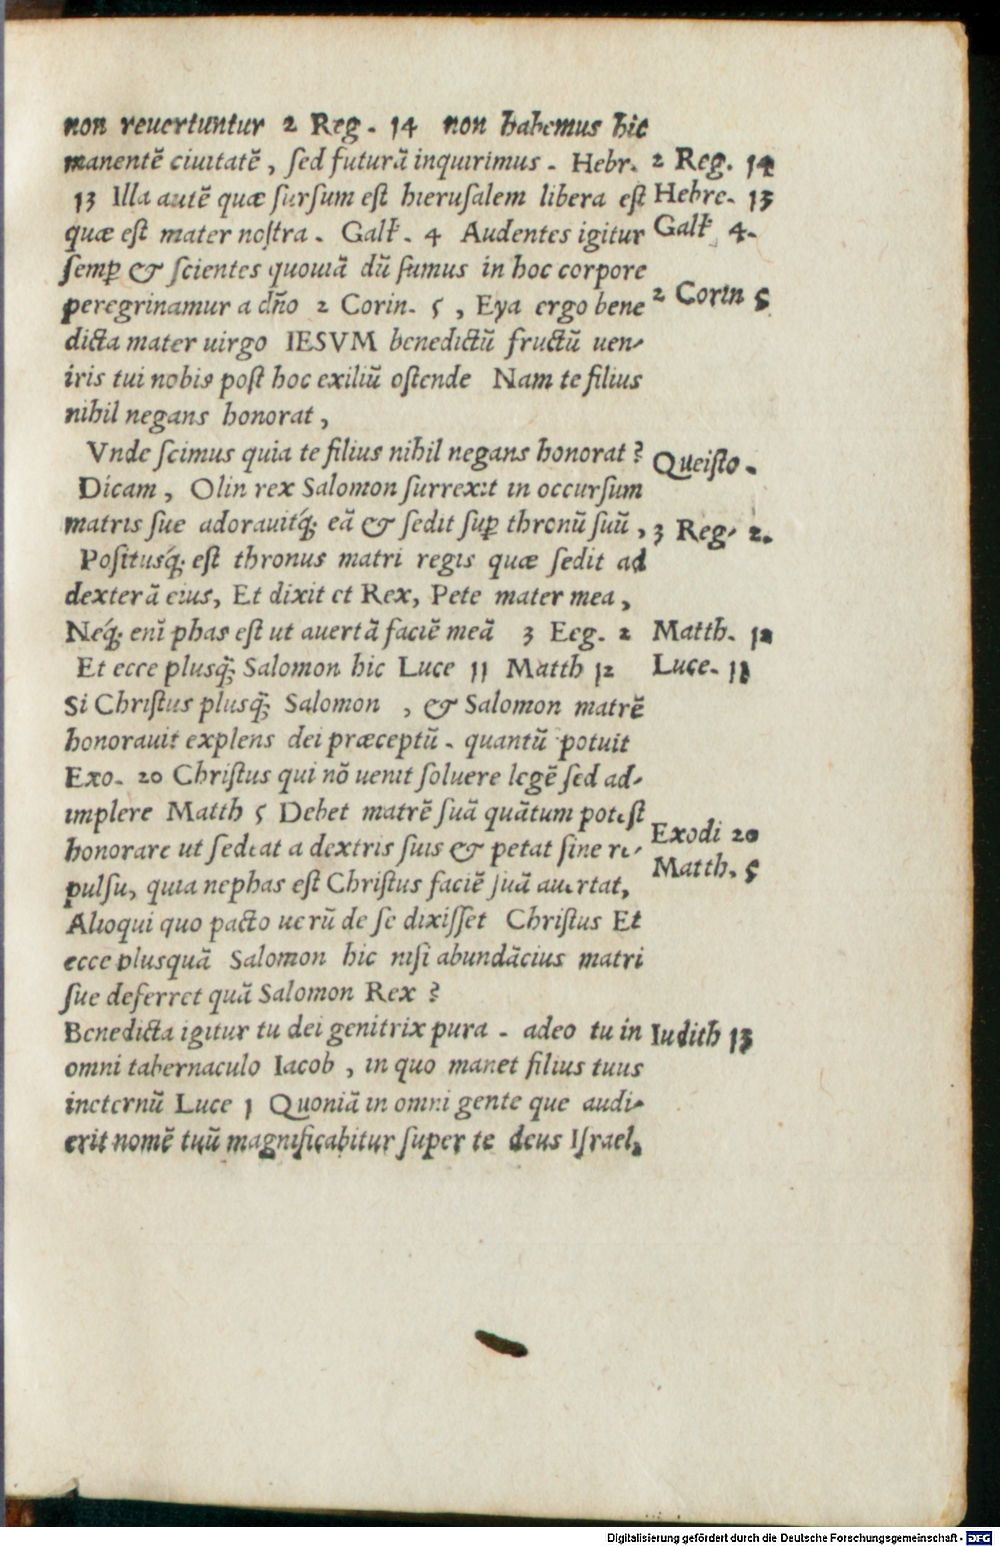 non reuertuntur 2 Reg. 14 non habemus hic
manentē ciuitatē, sed futurā inquirimus. Hebr.
13 Illa autē quæ sursum est hierusalem libera est
quæ est mater nostra. Gall. 4 Audentes igitur
semꝑ & scientes quouiā dū sumus in hoc corpore
peregrinamur a dño 2 Corin. 5, Eya ergo bene
dicta mater uirgo IESVM benedictū fructū uen-
iris tui nobis post hoc exiliū ostende Nam te filius
nihil negans honorat,
Vnde scimus quia te filius nihil negans honorat?
Dicam, Olin rex Salomon surrexit in occursum
matris sue adorauitq́; eā & sedit suꝑ thronū suū,
Positusq́; est thronus matri regis quæ sedit ad
dexterā eius, Et dixit et Rex, Pete mater mea,
Neq́; enī phas est ut auertā faciē meā 3 Eeg. 2
Et ecce plusq̃; Salomon hic Luce 11 Matth 12
Si Christus plusq̃; Salomon, & Salomon matrē
honorauit explens dei præceptū. quantū potuit
Exo. 20 Christus qui nō uenit soluere legē sed ad-
implere Matth 5 Debet matrē suā quātum potest
honorare ut sedeat a dextris suis & petat sine re-
pulsu, quia nephas est Christus faciē suā auertat,
Alioqui quo pacto uerū de se dixisset Christus Et
ecce plusquā Salomon hic nisi abundācius matri
sue deferret quā Salomon Rex?
Benedicta igitur tu dei genitrix pura. adeo tu in
omni tabernaculo Iacob, in quo manet filius tuus
ineternū Luce 1 Quoniā in omni gente que audi-
erit nomē tuū magnificabitur super te deus Israel.
2 Reg. 14
Hebre. 13
Gall. 4.
2 Corin 5
Queisto.
3 Reg. 2.
Matth. 12
Luce. 11
Exodi 20
Matth. 5
Iudith 13
Digitalisierung gefördert durch die Deutsche Forschungsgemeinschaft - DFG